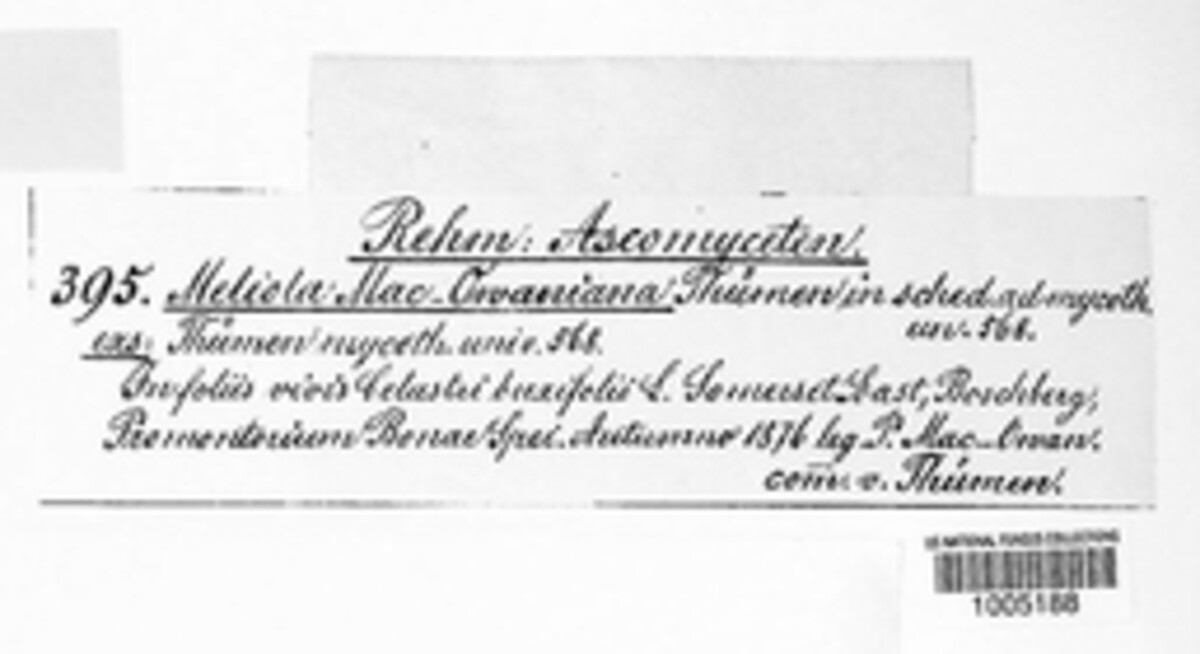 Rehm: Ascomyceten.
395. Meliola Mac-Owaniana Thümen in sched. ad mycoth.
univ. 568.
exs: Thümen mycoth. univ. 568.
In foliis vivis Celastri buxifolii L. Somerset East, Boschberg,
Promontorium Bonae Spei. Autumno 1876 leg P. Mac-Owan.
com̅. v. Thümen.
US NATIONAL FUNGUS COLLECTIONS
1005188